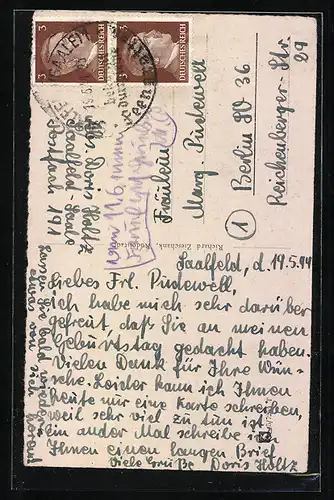 3
DEUTSCHES REICH
3
DEUTSCHES REICH
Doris Holtz
Saalfeld-Saale
Postfach 191
Fräulein
Marg Pudewell
1
Berlin SO 36
Reichenberger-Str.
29
Richard Zieschank, Rudolstadt
Saalfeld, d. 19.5.44
Liebes Frl. Pudewell,
Ich habe mich sehr darüber
gefreut, daß Sie an meinen
Geburtstag gedacht haben.
Vielen Dank für Ihre Wün-
sche. Leider kann ich Ihnen
heute nur eine Karte schreiben,
weil sehr viel zu tun ist.
Ein ander Mal schreibe ich
Ihnen einen langen Brief
Viele Grüße Doris Holtz
Lassen Sie bald wieder
etwas von sich hören